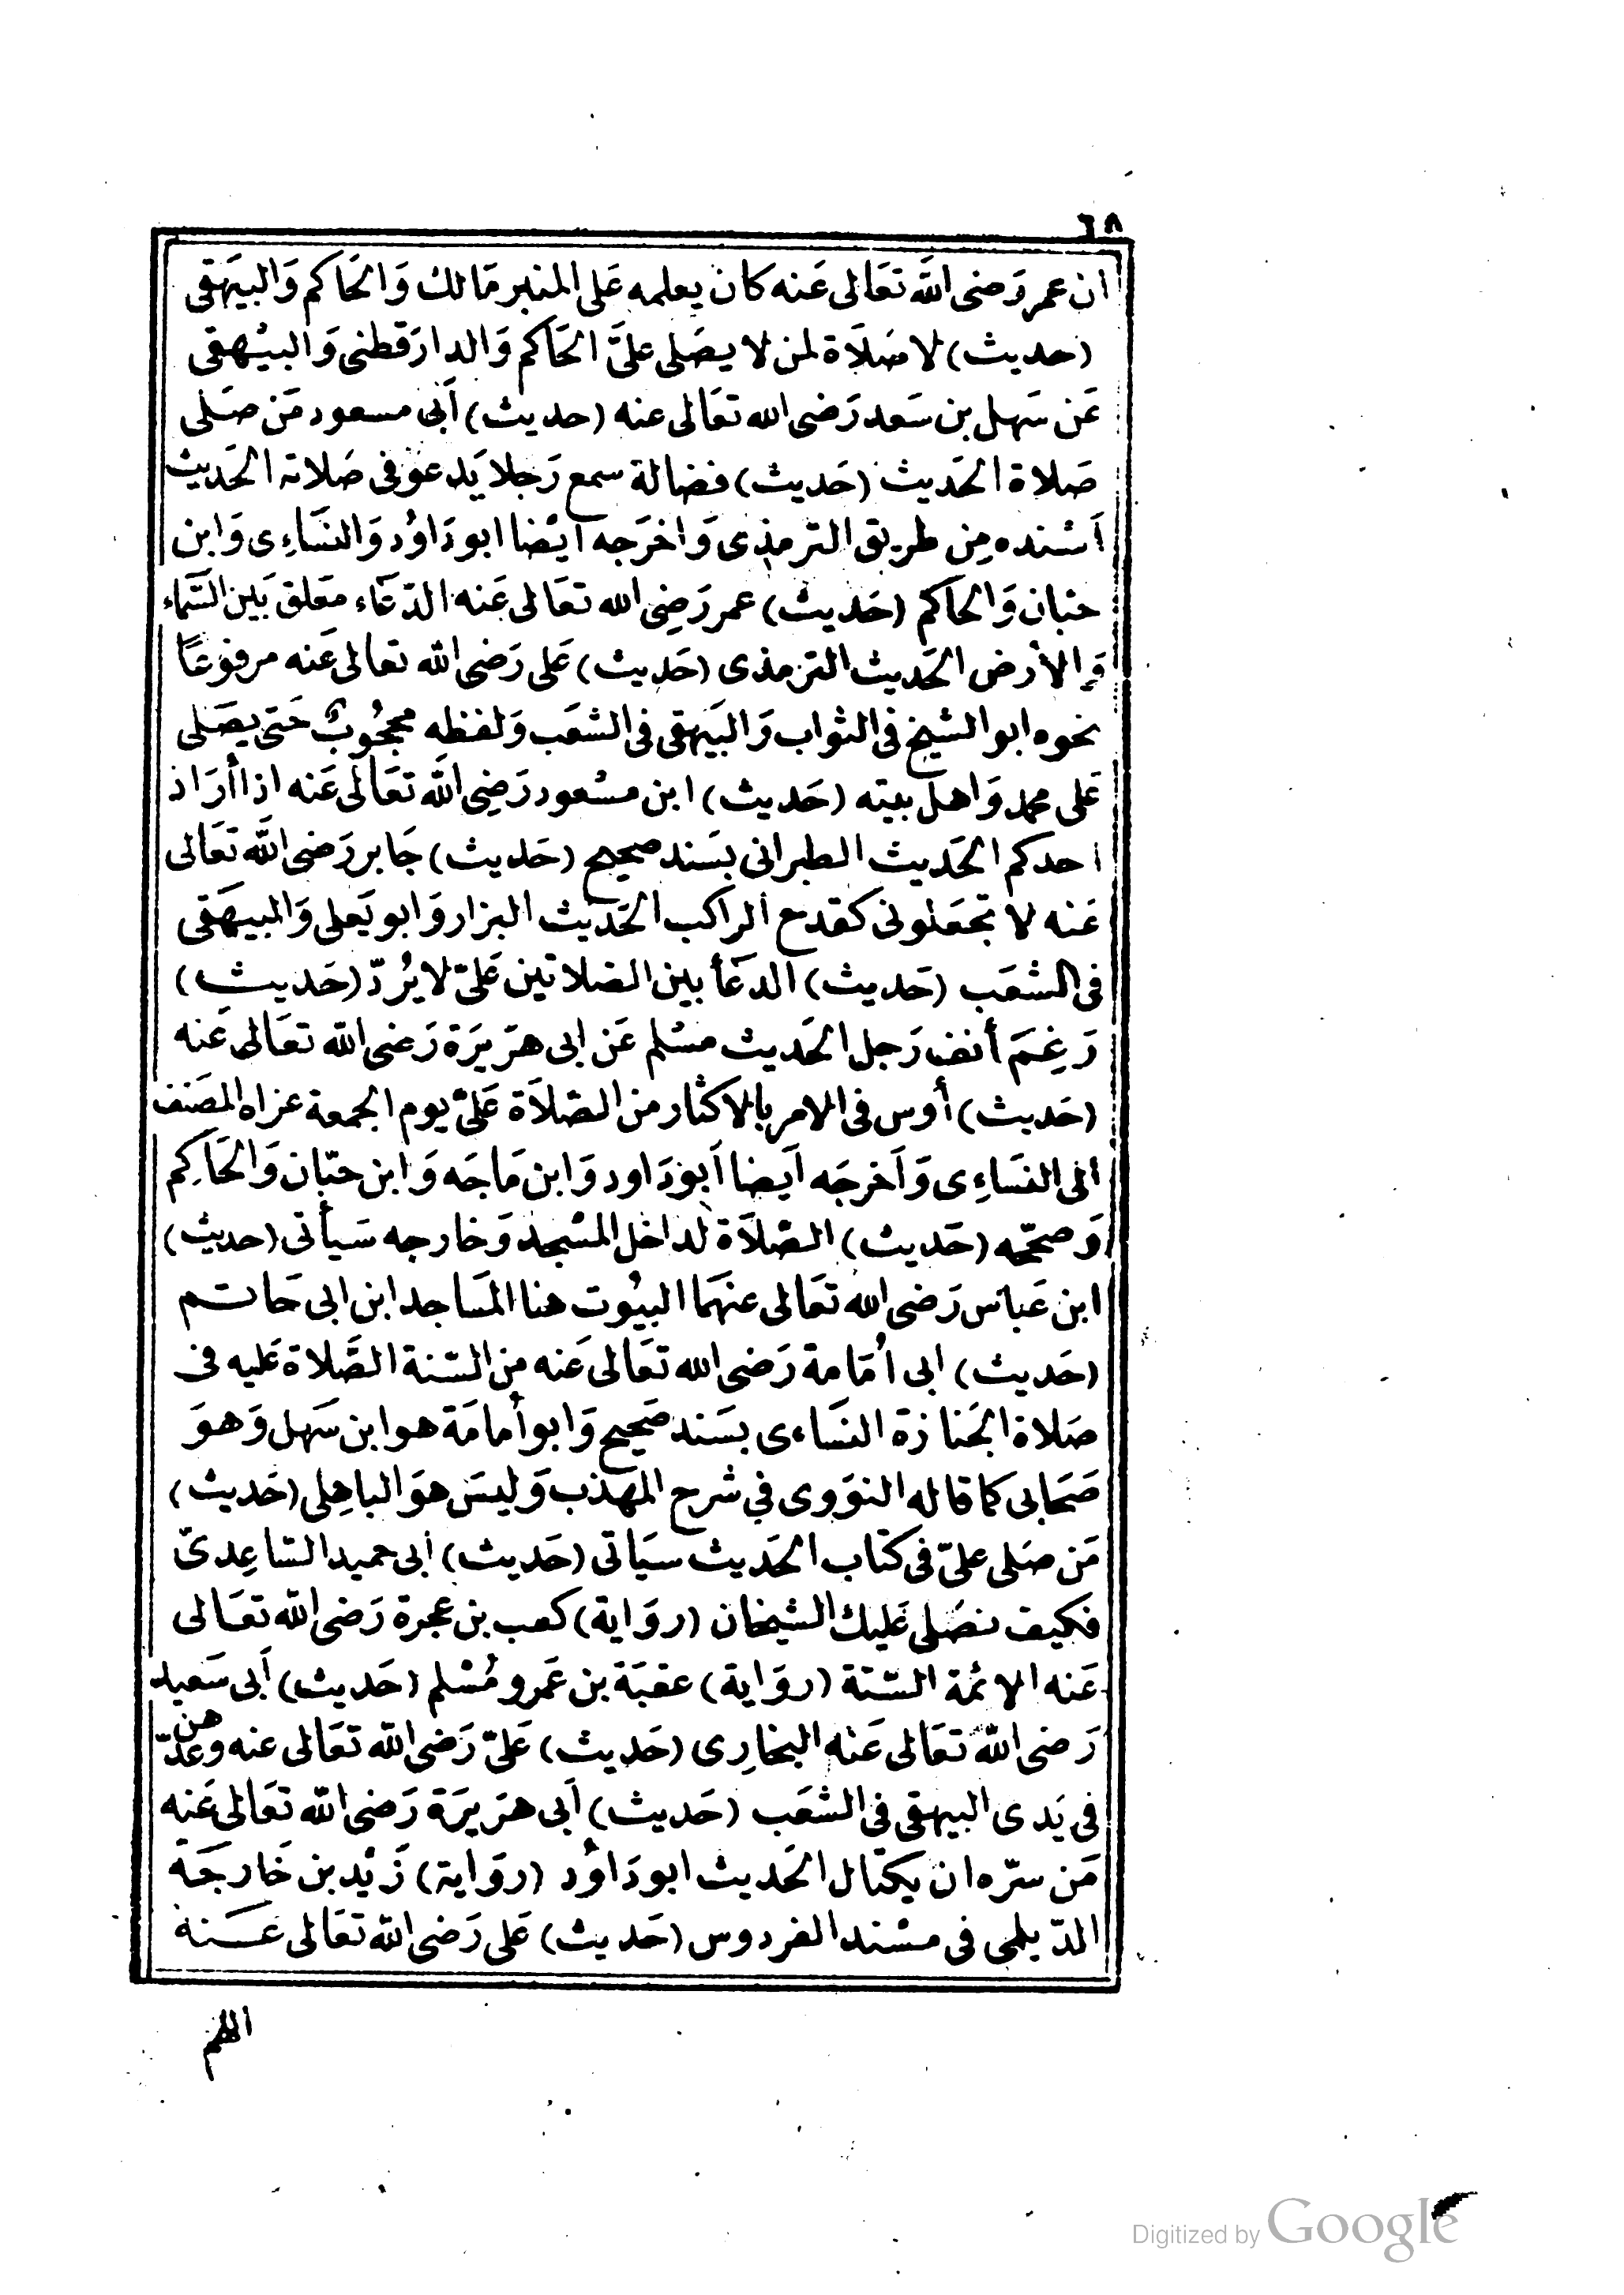 ٦٨
ان عمر رَضى اللَّه تعَالى عَنه كان يعلمه عَلى المنبر مَالك وَالحَاكم وَالبيَهقى
(حديث) لا صَلَاة لمن لا يصَلى علىَّ الحَاكم وَالدارَقطنى وَالبيْهقى
عَن سَهل بن سَعد رَضى الله تعَالى عنه (حديث) أَبى مسعود مَن صَلى
صَلاة الحَديث (حَديث) فضالة سمع رَجلا يَدعوْ فى صَلاته الحَديث
أسْنده مِن طريق الترمذى وَاخرَجه ايْضا ابو دَاوُد وَالنسَاءِى وَابن
حبان وَالحَاكم (حَديث) عمر رَضِى الله تعَالى عَنه الدّعَاء معَلق بَين السَّماء
وَالأرض الحَديث الترمذى (حَديث) عَلى رَضى اللّه تعالى عَنه مرفوْعًا
نحوه ابو الشيخ فى الثواب وَالبَيهقى فى الشعَب وَلفظه محجُوبٌ حَتى يصَلى
عَلى محمد وَاهل بيته (حَديث) ابن مسْعود رَضِى اللَّه تعَالَى عَنه اذا أرَاد
احدكم الحَديث الطبرانى بسَند صحيح (حَديث) جَابر رَضى اللَّه تعَالى
عَنه لا تجعَلونى كقدح الراكب الحَديث البزار وَابو يَعلى وَالبيهَقى
فى الشعَب (حَديث) الدعَأ بين الصَلاتين عَلىّ لا يُردّ (حَديث)
رَغِمَ أنف رَجل الحَديث مسْلم عَن ابى هرَيرَة رَضى اللّه تعَالى عَنه
(حَديث) أوس فى الامر بالاكثار من الصّلاَة عَلىّ يوم الجمعة عزاه المصَنف
الى النسَاءِى وَأَخرجَه أيَضا أَبوْدَاود وَابن مَاجَه وَابن حبّان وَالحَاكِم
وَصححّه (حَديث) الصّلاَة لداخل المسْجد وَخارجه سَيأتى (حديث)
ابن عَباس رَضى اللّه تعَالى عنهَما البيُوت هنا المَساجد ابن ابى حَاتم
(حَديث) ابى أُمَامة رَضى الله تعَالى عَنه مِن السّنة الصَّلاة عَليه فى
صَلاة الجَنازة النسَاءى بسَند صَحيح وَابو أمامَة هو ابن سَهل وَهوَ
صَحَابى كما قاله النوَوى فى شرح المهَذب وَليسَ هوَ الباهِلى (حَديث)
مَن صلى علىّ فى كتاب الحَديث سيَاتى (حَديث) أبى حميد السّاعِدىّ
فكيف نصَلى عَليك الشيخان (روَاية) كعب بن عجرة رَضى اللّه تعَالى
عَنه الائمة السّتة (روَاية) عقبَة بن عَمرو مُسْلم (حَديث) أَبى سَعيد
رَضى اللّه تعَالى عَنه البخارِى (حَديث) عَلىّ رَضى اللّه تعَالى عنه وعدّهن
فى يَدى البيهقى فى الشعَب (حَديث) أَبى هرَيرَة رَضى اللّه تعَالى عَنه
مَن سرّه ان يكتال الحَديث ابو دَاوُد (روَاية) زَيْد بن خَارجَة
الدّيلمى فى مسْند الفردوس (حَديث) عَلى رَضى اللّه تعَالى عَنه
اللهم
Digitized by Google